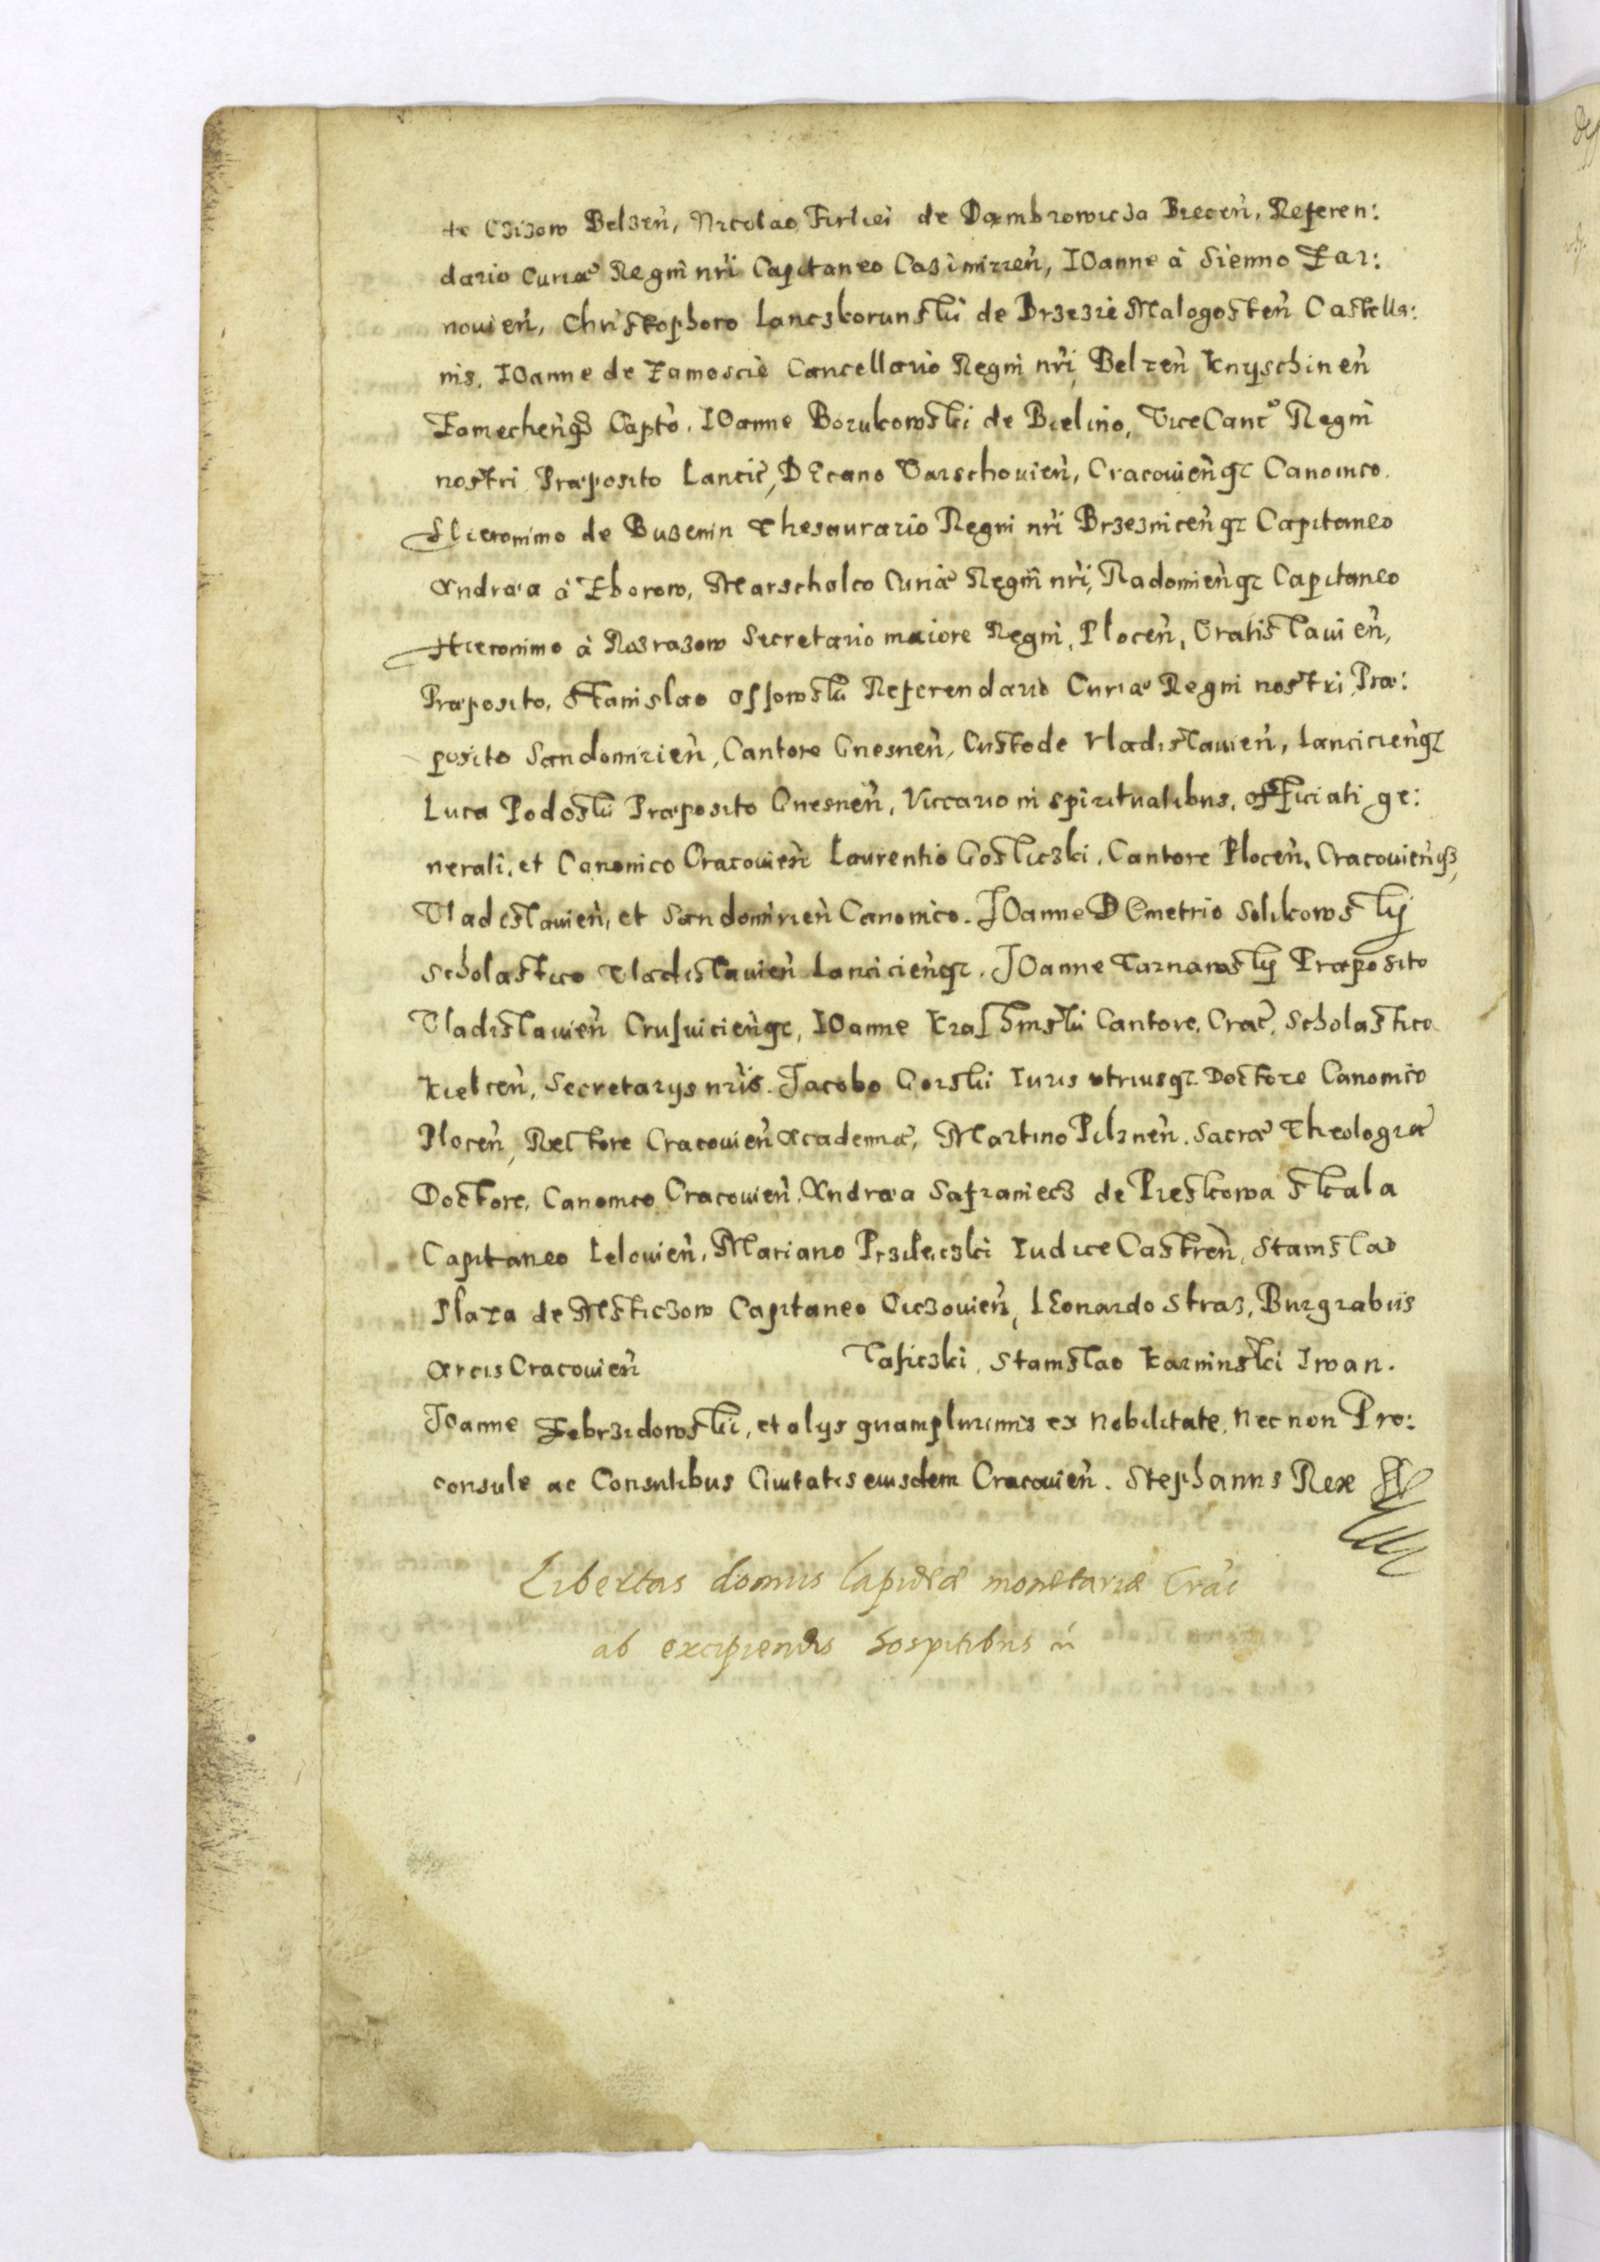 de Czizow Belzeñ, Nicolao Firliei de Dæmbrowicza Bieceñ, Referen:
dario Curiæ Regni nr̃i Capitaneo Casimirieñ, IOanne à Sienno Zar:
novieñ, Christophoro Lanczkorunski de Brzezie Malogosteñ Castella:
nis. IOanne de Zamoscie Cancellario Regni nr̃i, Belzeñ Knyschineñ
Zamecheñqз Capto. IOanne Borukowski de Bielino, ViceCanc° Regni
nostri Præposito Lancic̃, DEcano Varschovieñ, Cracovieñqз Canonico.
Hieronimo de Buzenin Thesaurario Regni nr̃i Brzeznicenqз Capitaneo
Andræa à Zborow, Marschalco Curiæ Regni nr̃i, Radomieñqз Capitaneo
Hieronimo à Rozrazow Secretario maiore Regni, Ploceñ, Vratislavieñ,
Præposito, Stanislao Ossowski Referendario Curiæ Regni nostri, Præ:
posito Sandomirieñ, Cantore Gnesneñ, Custode Vladislavieñ, Lancicieñqз
Luca Podoski Præposito Gnesneñ, Viccario in spiritualibus, officiali ge:
nerali, et Canonico Cracovieñ Laurentio Gosliczki, Cantore Ploceñ, Cracovieñqз,
Vladislavieñ, et Sandomirieñ Canonico. IOanne DEmetrio Solikowskij
Scholastico Vladislavieñ Lancicieñqз. IOanne Tarnawskij Præposito
Vladislavieñ Crusvicieñqз, IOanne Krasinski Cantore, Crac̃, Scholastico
Kielceñ, Secretarys nr̃is. Jacobo Gorski Iuris utriusqз Doctore Canonico
Ploceñ, Rectore Cracovieñ Academiæ, Martino Pilzneñ. Sacræ Theologiæ
Doctore, Canonico Cracovieñ, Andræa Safraniecz de Pieskowa Skala
Capitaneo Lelovieñ, Mariano Przileiczki Iudice Castreñ, Stanislao
Plaza de Msticzow Capitaneo Oiczovieñ, LEonardo Straz, Burgrabiis
Arcis Cracovieñ Laficzki, Stanislao Karninski Iwan.
IOanne Zebrzidowski, et alys quamplurimis ex Nobilitate, Nec non Pro:
consule ac Consulibus Civitatis eiusdem Cracovieñ. Stephanus Rex
Libertas domus lapideæ monetariæ Crac̃
ab excipiendis hospitibus